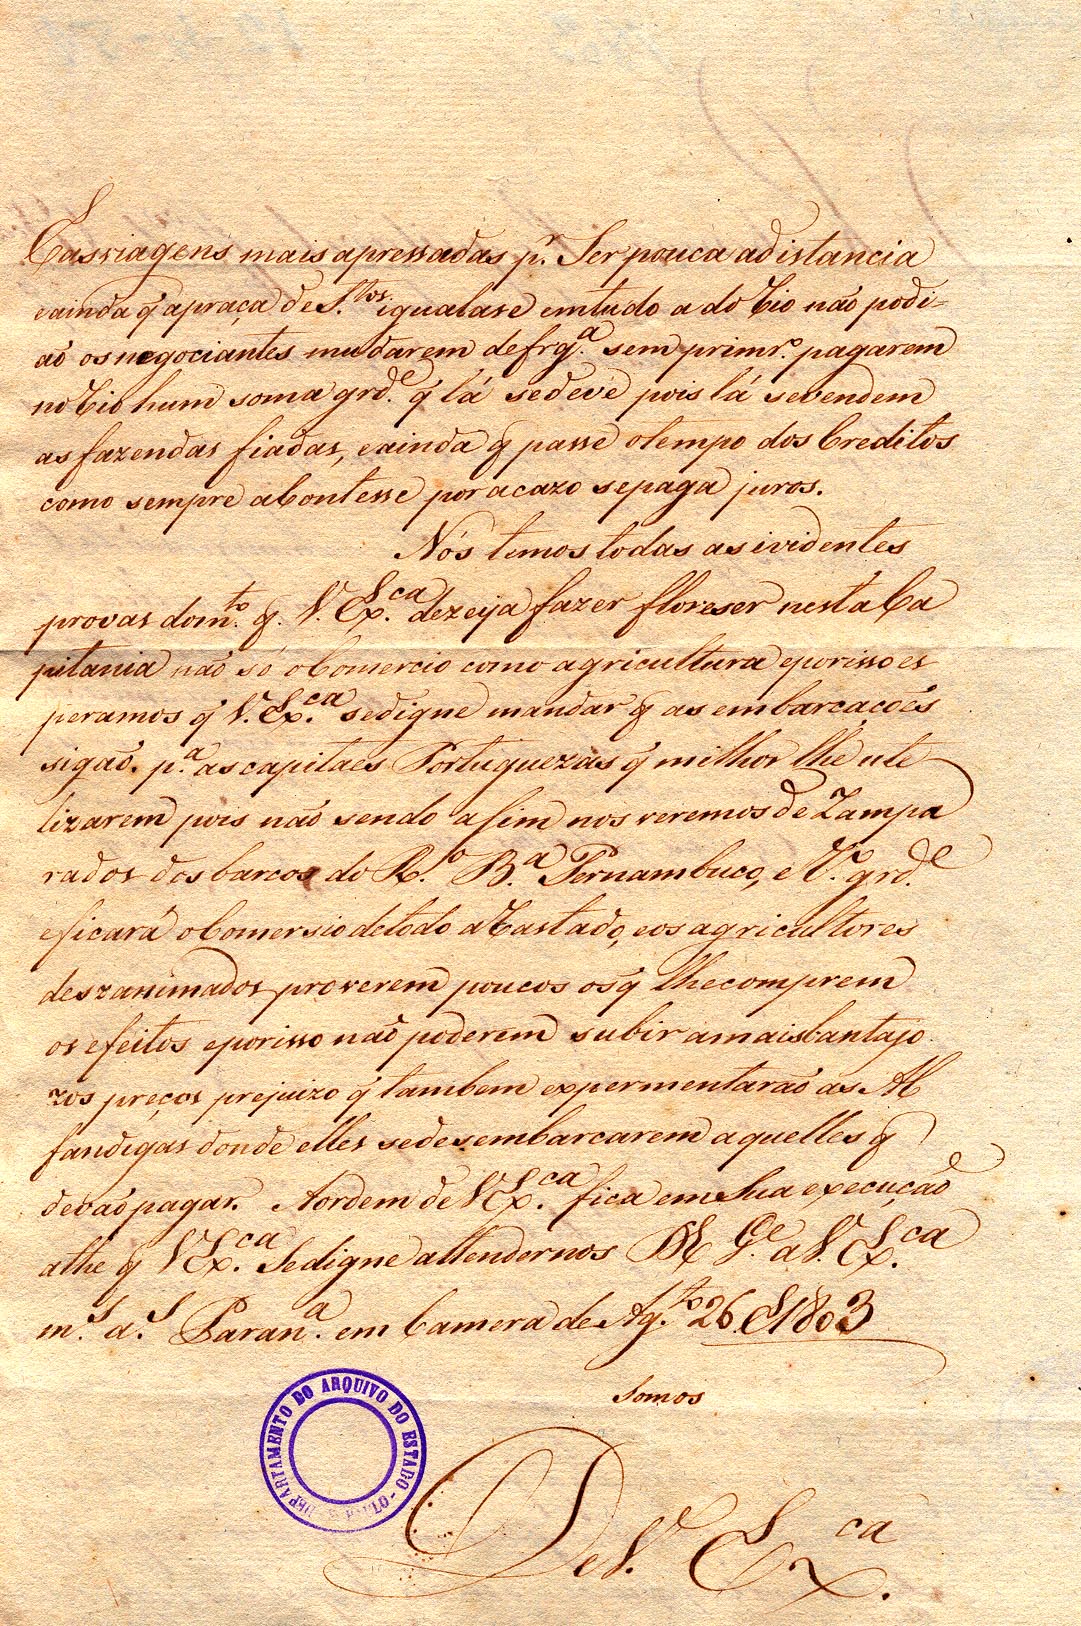 Easviagens mais apressadas pr. Ser pouca adistancia
eainda q̃ apraça de S.tos igualase emtudo a do Rio não podi=
aõ os negociantes mudarem defrg.a sem primr.o pagarem
no Rio hum soma grd.e q̃ lá sedeve pois lá sevendem
as fazendas fiadas, eainda q̃ passe otempo dos Creditos
como sempre aContesse por acazo sepaga juros.
Nós temos todas as ividentes
provas dom.to q̃. V. Ex.ca dezeija fazer floreser nesta Ca
pitania naõ só oComercio como agricultura eporisso es
peramos q̃ V. Ex.ca sedigne mandar q̃ as embarcaçoẽs
sigaõ. p.a ascapitaẽs Portuguezas q̃ milhor lhe ute
lizarem pois naõ sendo asim nos veremos de Zampa
rados dos barcos do R.o B.a Pernambuco, e R.o grd.e
eficará oComersio detodo aRastado, eos agricultores
deszanimados proverem poucos osq̃ lhecomprem
os efeitos eporisso naõ poderem subir amaisbantajo
zos preços prejuizo q̃ tambem expermentaraõ as Al
fandigas donde elles sedesembarcarem aquelles q̃
devaõ pagar. Aordem de V Ex.ca fica em Sua execuçaõ
athe q̃ V Ex.ca Sedigne attendernos D.s G.e a V. Ex.ca
m.s a.s Paran.a em Camera de Ag.to 26 d 1803
Somos
De V. Ex.ca
DEPARTAMENTO DO ARQUIVO DO ESTADO